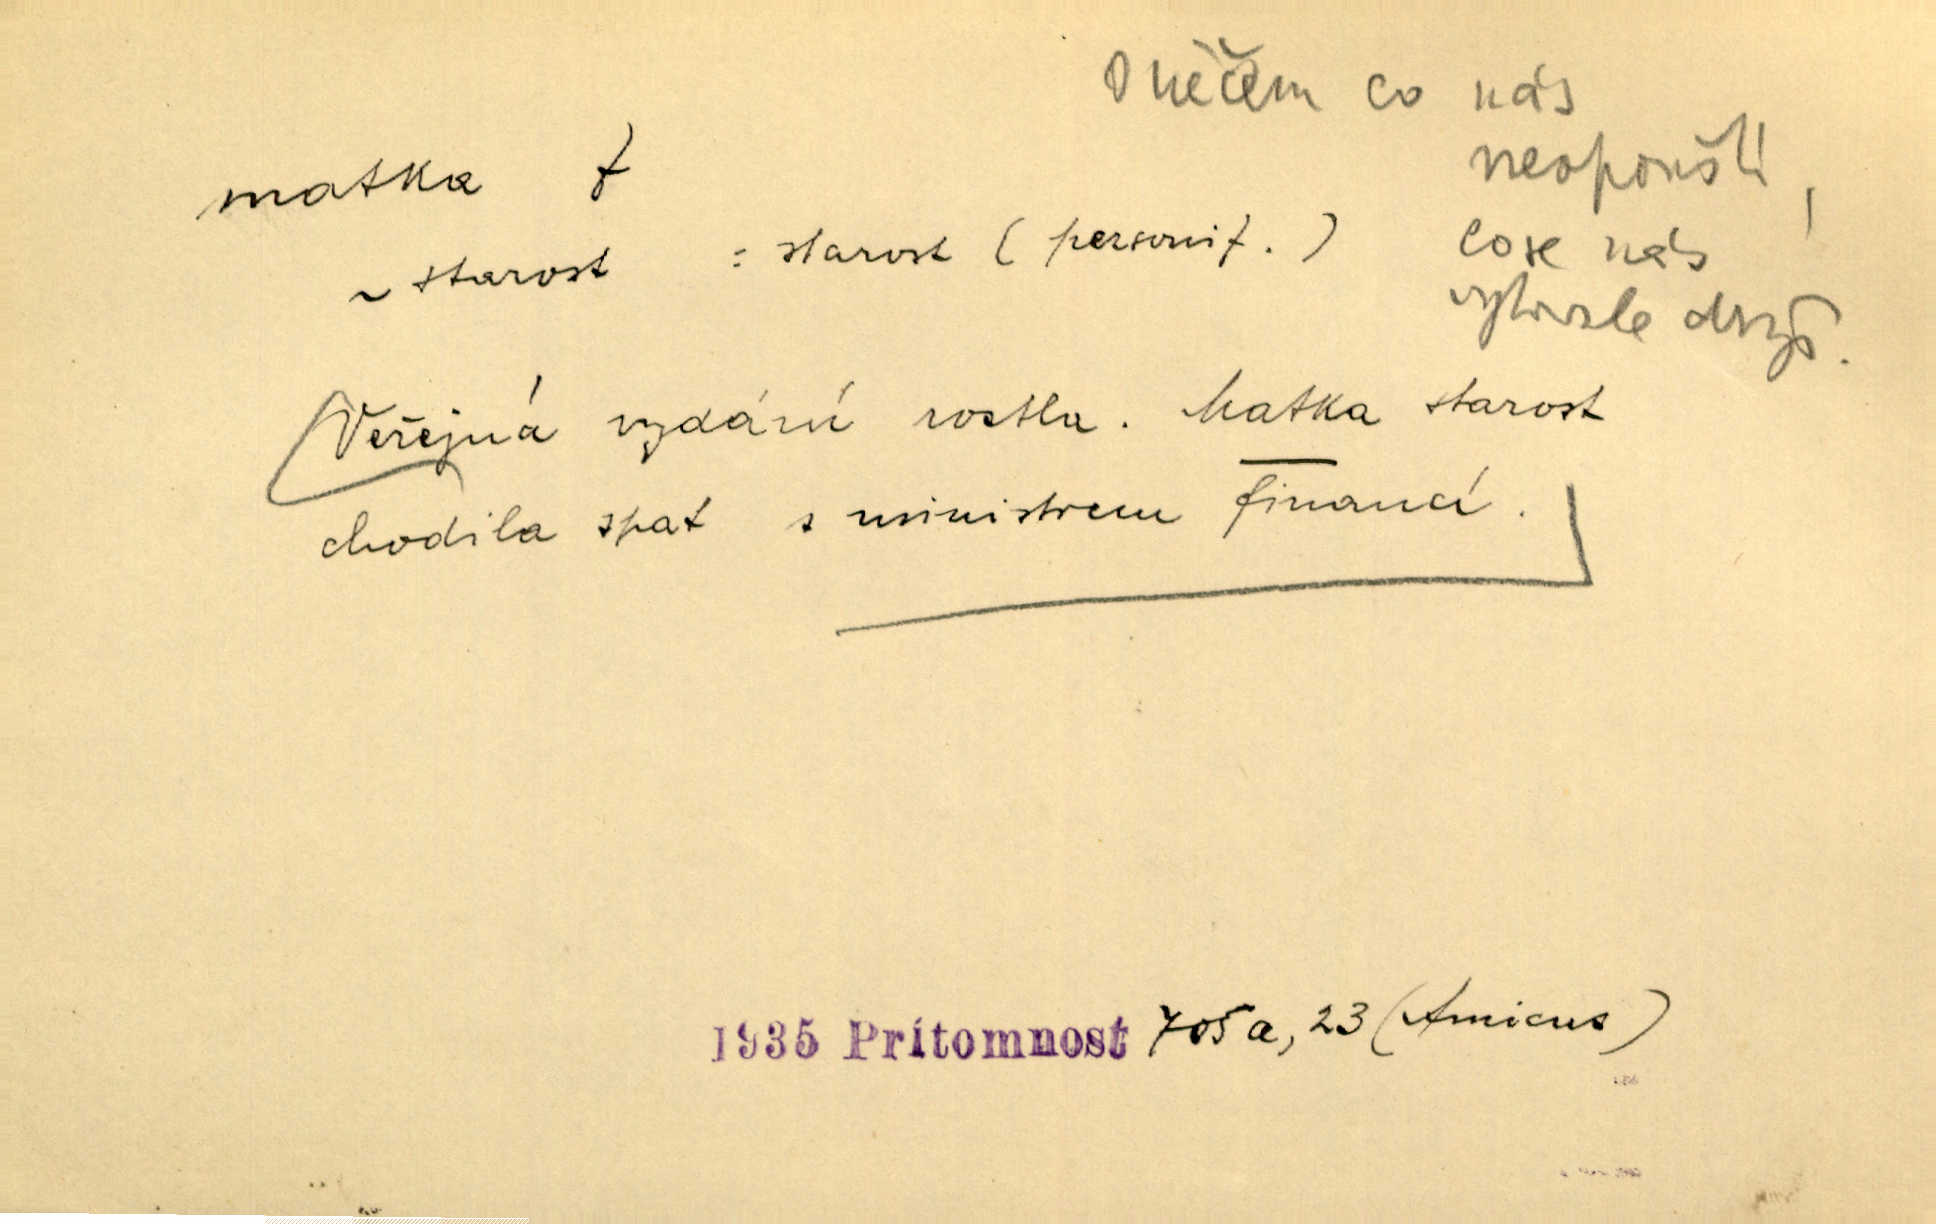 O něčem co nás
neopouští,
co se nás
vytrvale drží.
matka f
~ starost : starost (personif.)
Veřejná vydání rostla. Matka starost
chodila spat s ministrem financí.
1935 Prítomnost 705a, 23 (Amicus)